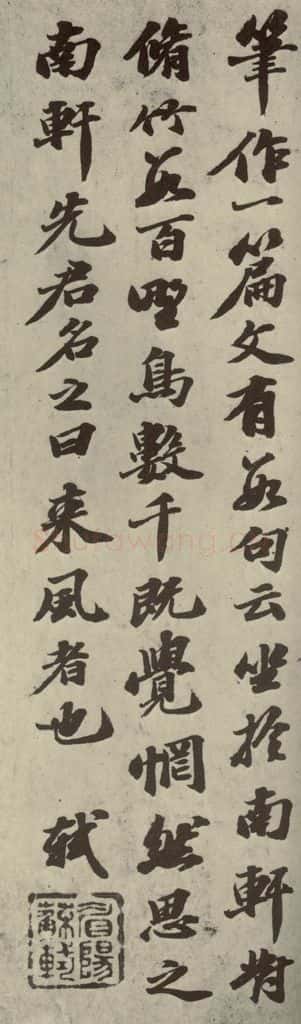 筆作一篇文有數句云坐於南軒對
脩竹數百野鳥數千既覺惘然思之
南軒先君名之曰來風者也 軾
眉陽蘇軾